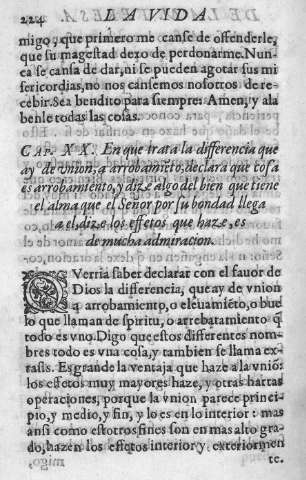 224 LA VIDA
migo, que primero me canse de offenderle,
que su magestad dexo de perdonarme. Nun
ca se cansa de dar, ni se pueden agotar sus mi
sericordias, no nos cansemos nosotros de re-
cebir. Sea bendito para siempre: Amen, y ala
benle todas las cosas.
CAP. XX. En que trata la differencia que
ay de vnion, a arrobamiẽto, declara que cosa
es arrobamiento, y dize algo del bien que tiene
el alma que el Señor por su bondad llega
a el, dize los effetos que haze, es
de mucha admiracion.
QVerria saber declarar con el fauor de
Dios la differencia, que ay de vnion
a arrobamiento, o eleuamiẽto, o bue
lo que llaman de spiritu, o arrebatamiento q̃
todo es vno. Digo que estos differentes nom
bres todo es vna cosa, y tambien se llama ex-
tasis. Es grande la ventaja que haze a la vniõ:
los effetos muy mayores haze, y otras hartas
operaciones, porque la vnion parece princi-
pio, y medio, y fin, y lo es en lo interior: mas
ansi como estotros fines son en mas alto gra-
do, hazen los effetos interior y exteriormen
te.